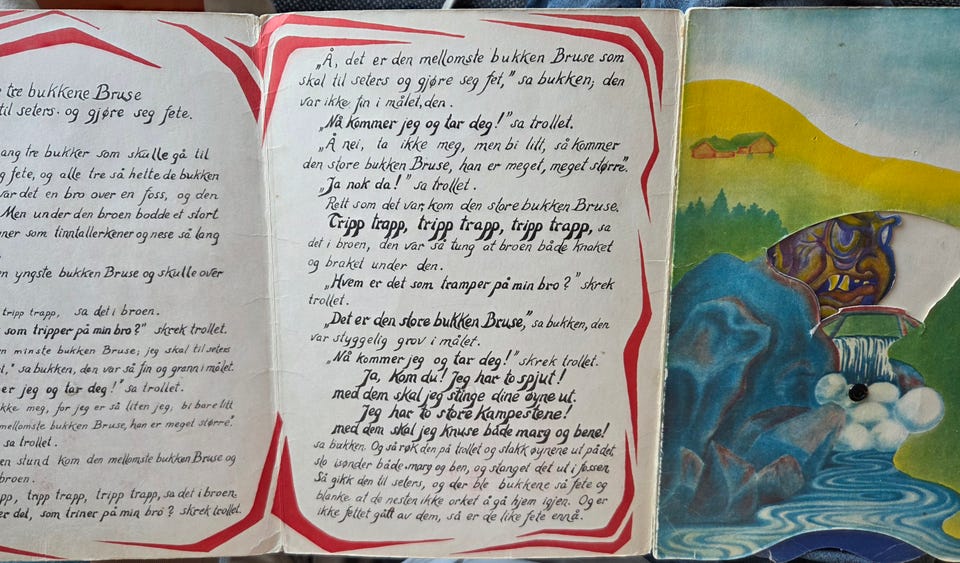 tre bukkene Bruse
til seters og gjøre seg fete.
ang tre bukker som skulle gå til
g fete, og alle tre så hette de bukken
var det en bro over en foss, og den
Men under den broen bodde et stort
ner som tinntallerkener og nese så lang
n yngste bukken Bruse og skulle over
tripp trapp, sa det i broen.
som tripper på min bro?" skrek trollet.
n minste bukken Bruse; jeg skal til seters
," sa bukken, den var så fin og grann i målet.
er jeg og tar deg!" sa trollet.
kke meg, for jeg er så liten jeg; bi bare litt
mellomste bukken Bruse, han er meget større."
sa trollet.
en stund kom den mellomste bukken Bruse og
broen.
pp, tripp trapp, tripp trapp, sa det i broen.
er det, som triner på min bro? skrek trollet.
„Å, det er den mellomste bukken Bruse som
skal til seters og gjøre seg fet," sa bukken; den
var ikke fin i målet, den.
„Nå kommer jeg og tar deg!" sa trollet.
„Å nei, ta ikke meg, men bi litt, så kommer
den store bukken Bruse, han er meget, meget større".
„Ja nok da!" sa trollet.
Rett som det var, kom den store bukken Bruse.
Tripp trapp, tripp trapp, tripp trapp, sa
det i broen, den var så tung at broen både knaket
og braket under den.
„Hvem er det som tramper på min bro?" skrek
trollet.
„Det er den store bukken Bruse," sa bukken, den
var styggelig grov i målet.
„Nå kommer jeg og tar deg!" skrek trollet.
Ja, kom du! Jeg har to spjut!
med dem skal jeg stinge dine øyne ut.
Jeg har to store kampestene!
med dem skal jeg knuse både marg og bene!
sa bukken. Og så røk den på trollet og stakk øynene ut på det,
slo isønder både marg og ben, og stanget det ut i fossen.
Så gikk den til seters, og der ble bukkene så fete og
blanke at de nesten ikke orket å gå hjem igjen. Og er
ikke fettet gått av dem, så er de like fete ennå.